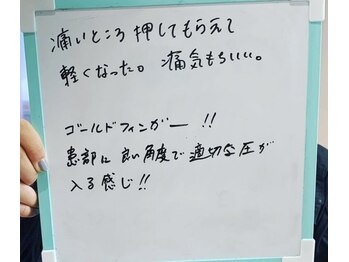 痛いところ押してもらえて
軽くなった。痛気もちいい。
ゴールドフィンガー!!
患部に良い角度で適切な圧が
入る感じ!!